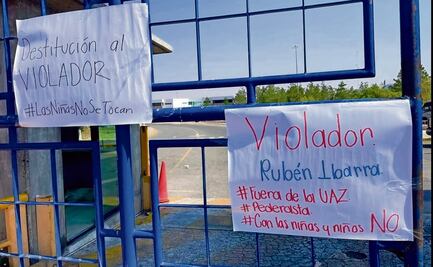 Destitución al
VIOLADOR
#LasNiñasNoSeTocan
Violador.
Rubén Ibarra
#Fuera de la UAZ
#Pederasta
#Con las niñas y niños NO